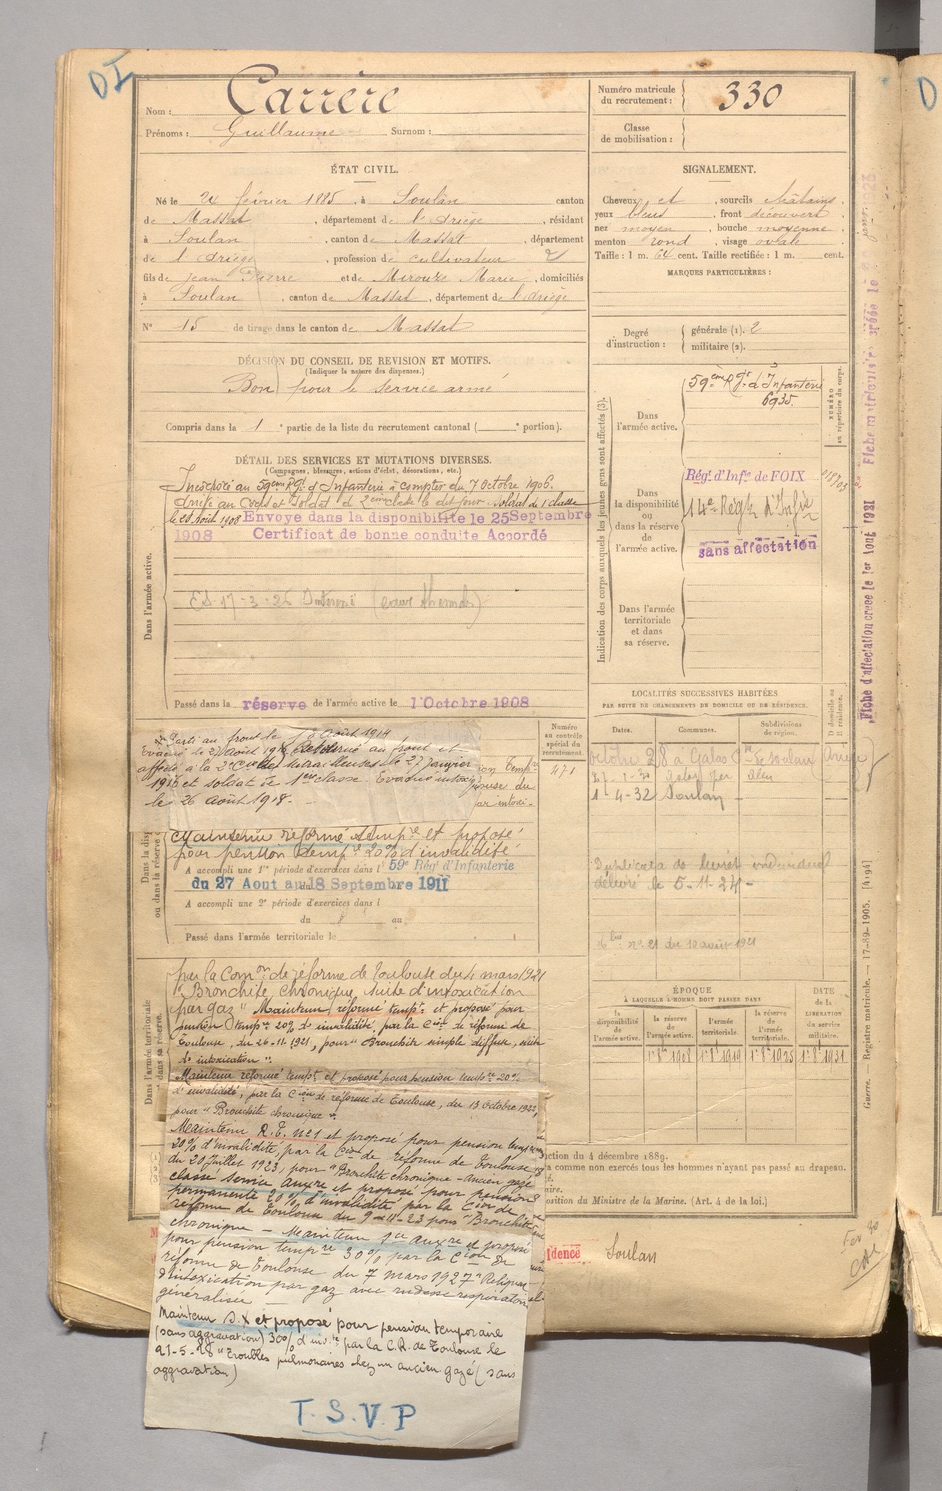 DI
Nom : Carrère
Prénoms : Guillaume Surnom :
Numéro matricule du recrutement : 330
Classe de mobilisation :
ÉTAT CIVIL.
Né le 24 février 1885, à Soulan canton
de Massat, département de l'Ariège, résidant
à Soulan, canton de Massat, département
de l'Ariège, profession de cultivateur
fils de Jean Pierre et de Mirouze Marie, domiciliés
à Soulan, canton de Massat, département de l'Ariège
N° 15 de tirage dans le canton de Massat
SIGNALEMENT.
Cheveux et, sourcils châtains,
yeux bleus, front découvert
nez moyen, bouche moyenne,
menton rond, visage ovale
Taille : 1 m. 64 cent. Taille rectifiée : 1 m. cent.
MARQUES PARTICULIÈRES :
Degré d'instruction : générale (1). 2
militaire (2).
DÉCISION DU CONSEIL DE REVISION ET MOTIFS.
(Indiquer la nature des dispenses.)
Bon pour le service armé
Compris dans la 1e partie de la liste du recrutement cantonal ( e portion).
DÉTAIL DES SERVICES ET MUTATIONS DIVERSES.
(Campagnes, blessures, actions d'éclat, décorations, etc.)
Incorporé au 59ème Rgt d'Infanterie à compter du 7 Octobre 1906.
Arrivé au Corps et Soldat de 2ème classe le dit jour. Soldat de 1e classe
le 28 août 1908 Envoyé dans la disponibilité le 25 Septembre
1908 Certificat de bonne conduite Accordé
Dans l'armée active.
Passé dans la réserve de l'armée active le 1 Octobre 1908
Indication des corps auxquels les jeunes gens sont affectés (3).
Dans l'armée active.
59ème Rgt d'Infanterie
6935.
NUMÉRO au répertoire du corps.
Dans la disponibilité ou dans la réserve de l'armée active.
Régt d'Infie de FOIX
14e Régt d'Infie
sans affectation
Dans l'armée territoriale et dans sa réserve.
Fiche d'affectation créée le 1er Août 1931
LOCALITÉS SUCCESSIVES HABITÉES
PAR SUITE DE CHANGEMENTS DE DOMICILE OU DE RÉSIDENCE.
Dates. Communes. Subdivisions de région. D domicile ou R résidence.
1-4-32 Soulan
délivré le 5-11-24
Numéro au contrôle spécial du recrutement.
471
Parti au front le 8 Août 1914
Evacué le 27 août 1914. Retourné au front et
affecté à la 2e Cie de Mitrailleuses le 27 Janvier
1916 et soldat de 1ère classe. Evacué intoxiqué
le 26 août 1918.
Maintenu réformé tempre et proposé
pour pension tempre 20% d'invalidité
A accompli une 1re période d'exercices dans l 59e Régt d'Infanterie
du 27 Aout au 18 Septembre 1911
A accompli une 2e période d'exercices dans l
du au
Passé dans l'armée territoriale le
par la Comon de réforme de Toulouse du 4 mars 1921
"Bronchite chronique, suite d'intoxication
par gaz" Maintenu réformé tempre et proposé pour
pension tempre 20% d'invalidité, par la Cion de réforme de
Toulouse, du 26-11-1921, pour "Bronchite simple diffuse, suite
d'intoxication".
Maintenu réformé tempre et proposé pour pension tempre 20%
d'invalidité, par la Cion de réforme de Toulouse, du 13 octobre 1922,
pour "Bronchite chronique".
Maintenu R.T. N°1 et proposé pour pension tempre
20% d'invalidité, par la Cion de réforme de Toulouse
du 20 Juillet 1923, pour "Bronchite chronique - ancien gazé
classé service Auxre et proposé pour pension
permanente 20% d'invalidité par la Cion de
réforme de Toulouse du 9-11-23 pour "Bronchite
chronique - Maintenu sce Auxre et proposé
pour pension tempre 30% par la Cion de
réforme de Toulouse du 7 mars 1927 "Reliquat
d'intoxication par gaz avec rudesse respiratoire
généralisée
Maintenu S.X et proposé pour pension temporaire
(sans aggravation) 30% d'inv.té par la C.R. de Toulouse le
21-5-28 "Troubles pulmonaires chez un ancien gazé (sans
aggravation)
T.S.V.P
ÉPOQUE
À LAQUELLE L'HOMME DOIT PASSER DANS
la disponibilité de l'armée active. la réserve de l'armée active. l'armée territoriale. la réserve de l'armée territoriale. DATE de la LIBÉRATION du service militaire.
ction du 4 décembre 1889.
a comme non exercés tous les hommes n'ayant pas passé au drapeau.
osition du Ministre de la Marine. (Art. 4 de la loi.)
idence Soulan
Guerre. Registre matricule. — 17-89-1905. (4194)